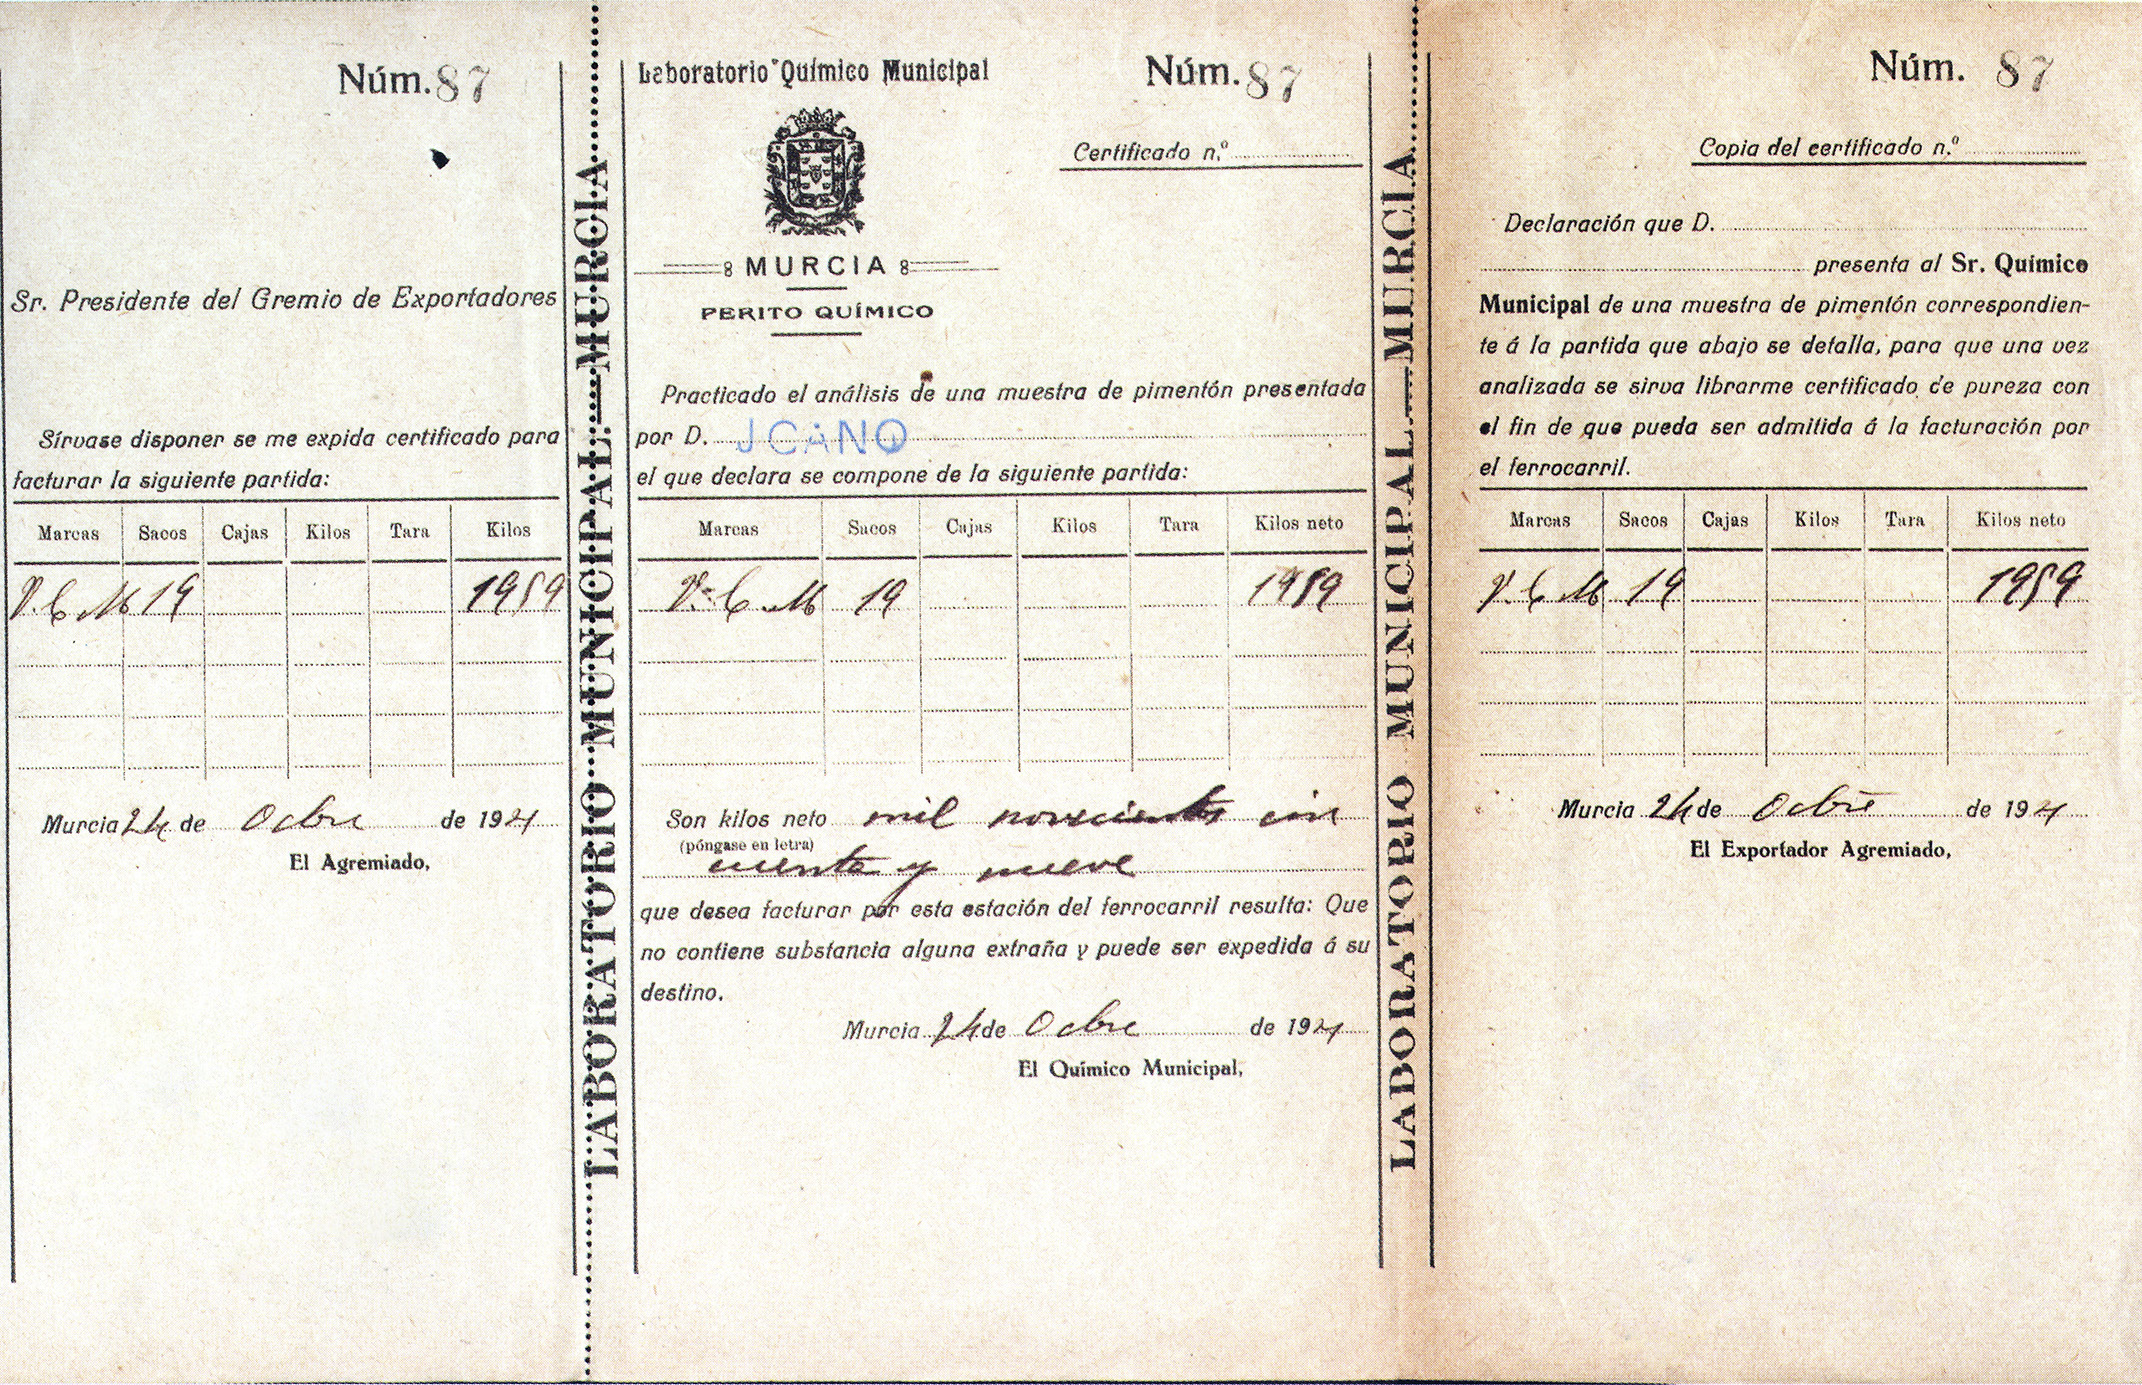 Núm. 87
Sr. Presidente del Gremio de Exportadores
Sírvase disponer se me expida certificado para
facturar la siguiente partida:
Marcas Sacos Cajas Kilos Tara Kilos
V. C. M 19 1959
Murcia 24 de Ocbre de 1921
El Agremiado,
LABORATORIO MUNICIPAL.—MURCIA
Laboratorio Químico Municipal
Núm. 87
Certificado n.º
MURCIA
PERITO QUÍMICO
Practicado el análisis de una muestra de pimentón presentada
por D. J CANO
el que declara se compone de la siguiente partida:
Marcas Sacos Cajas Kilos Tara Kilos neto
V. C. M 19 1959
Son kilos neto mil novecientos cin
(póngase en letra)
cuenta y nueve
que desea facturar por esta estación del ferrocarril resulta: Que
no contiene substancia alguna extraña y puede ser expedida á su
destino.
Murcia 24 de Ocbre de 1921
El Químico Municipal,
LABORATORIO MUNICIPAL.—MURCIA
Núm. 87
Copia del certificado n.º
Declaración que D.
presenta al Sr. Químico
Municipal de una muestra de pimentón correspondien-
te á la partida que abajo se detalla, para que una vez
analizada se sirva librarme certificado de pureza con
el fin de que pueda ser admitida á la facturación por
el ferrocarril.
Marcas Sacos Cajas Kilos Tara Kilos neto
V. C. M 19 1959
Murcia 24 de Ocbre de 1921
El Exportador Agremiado,